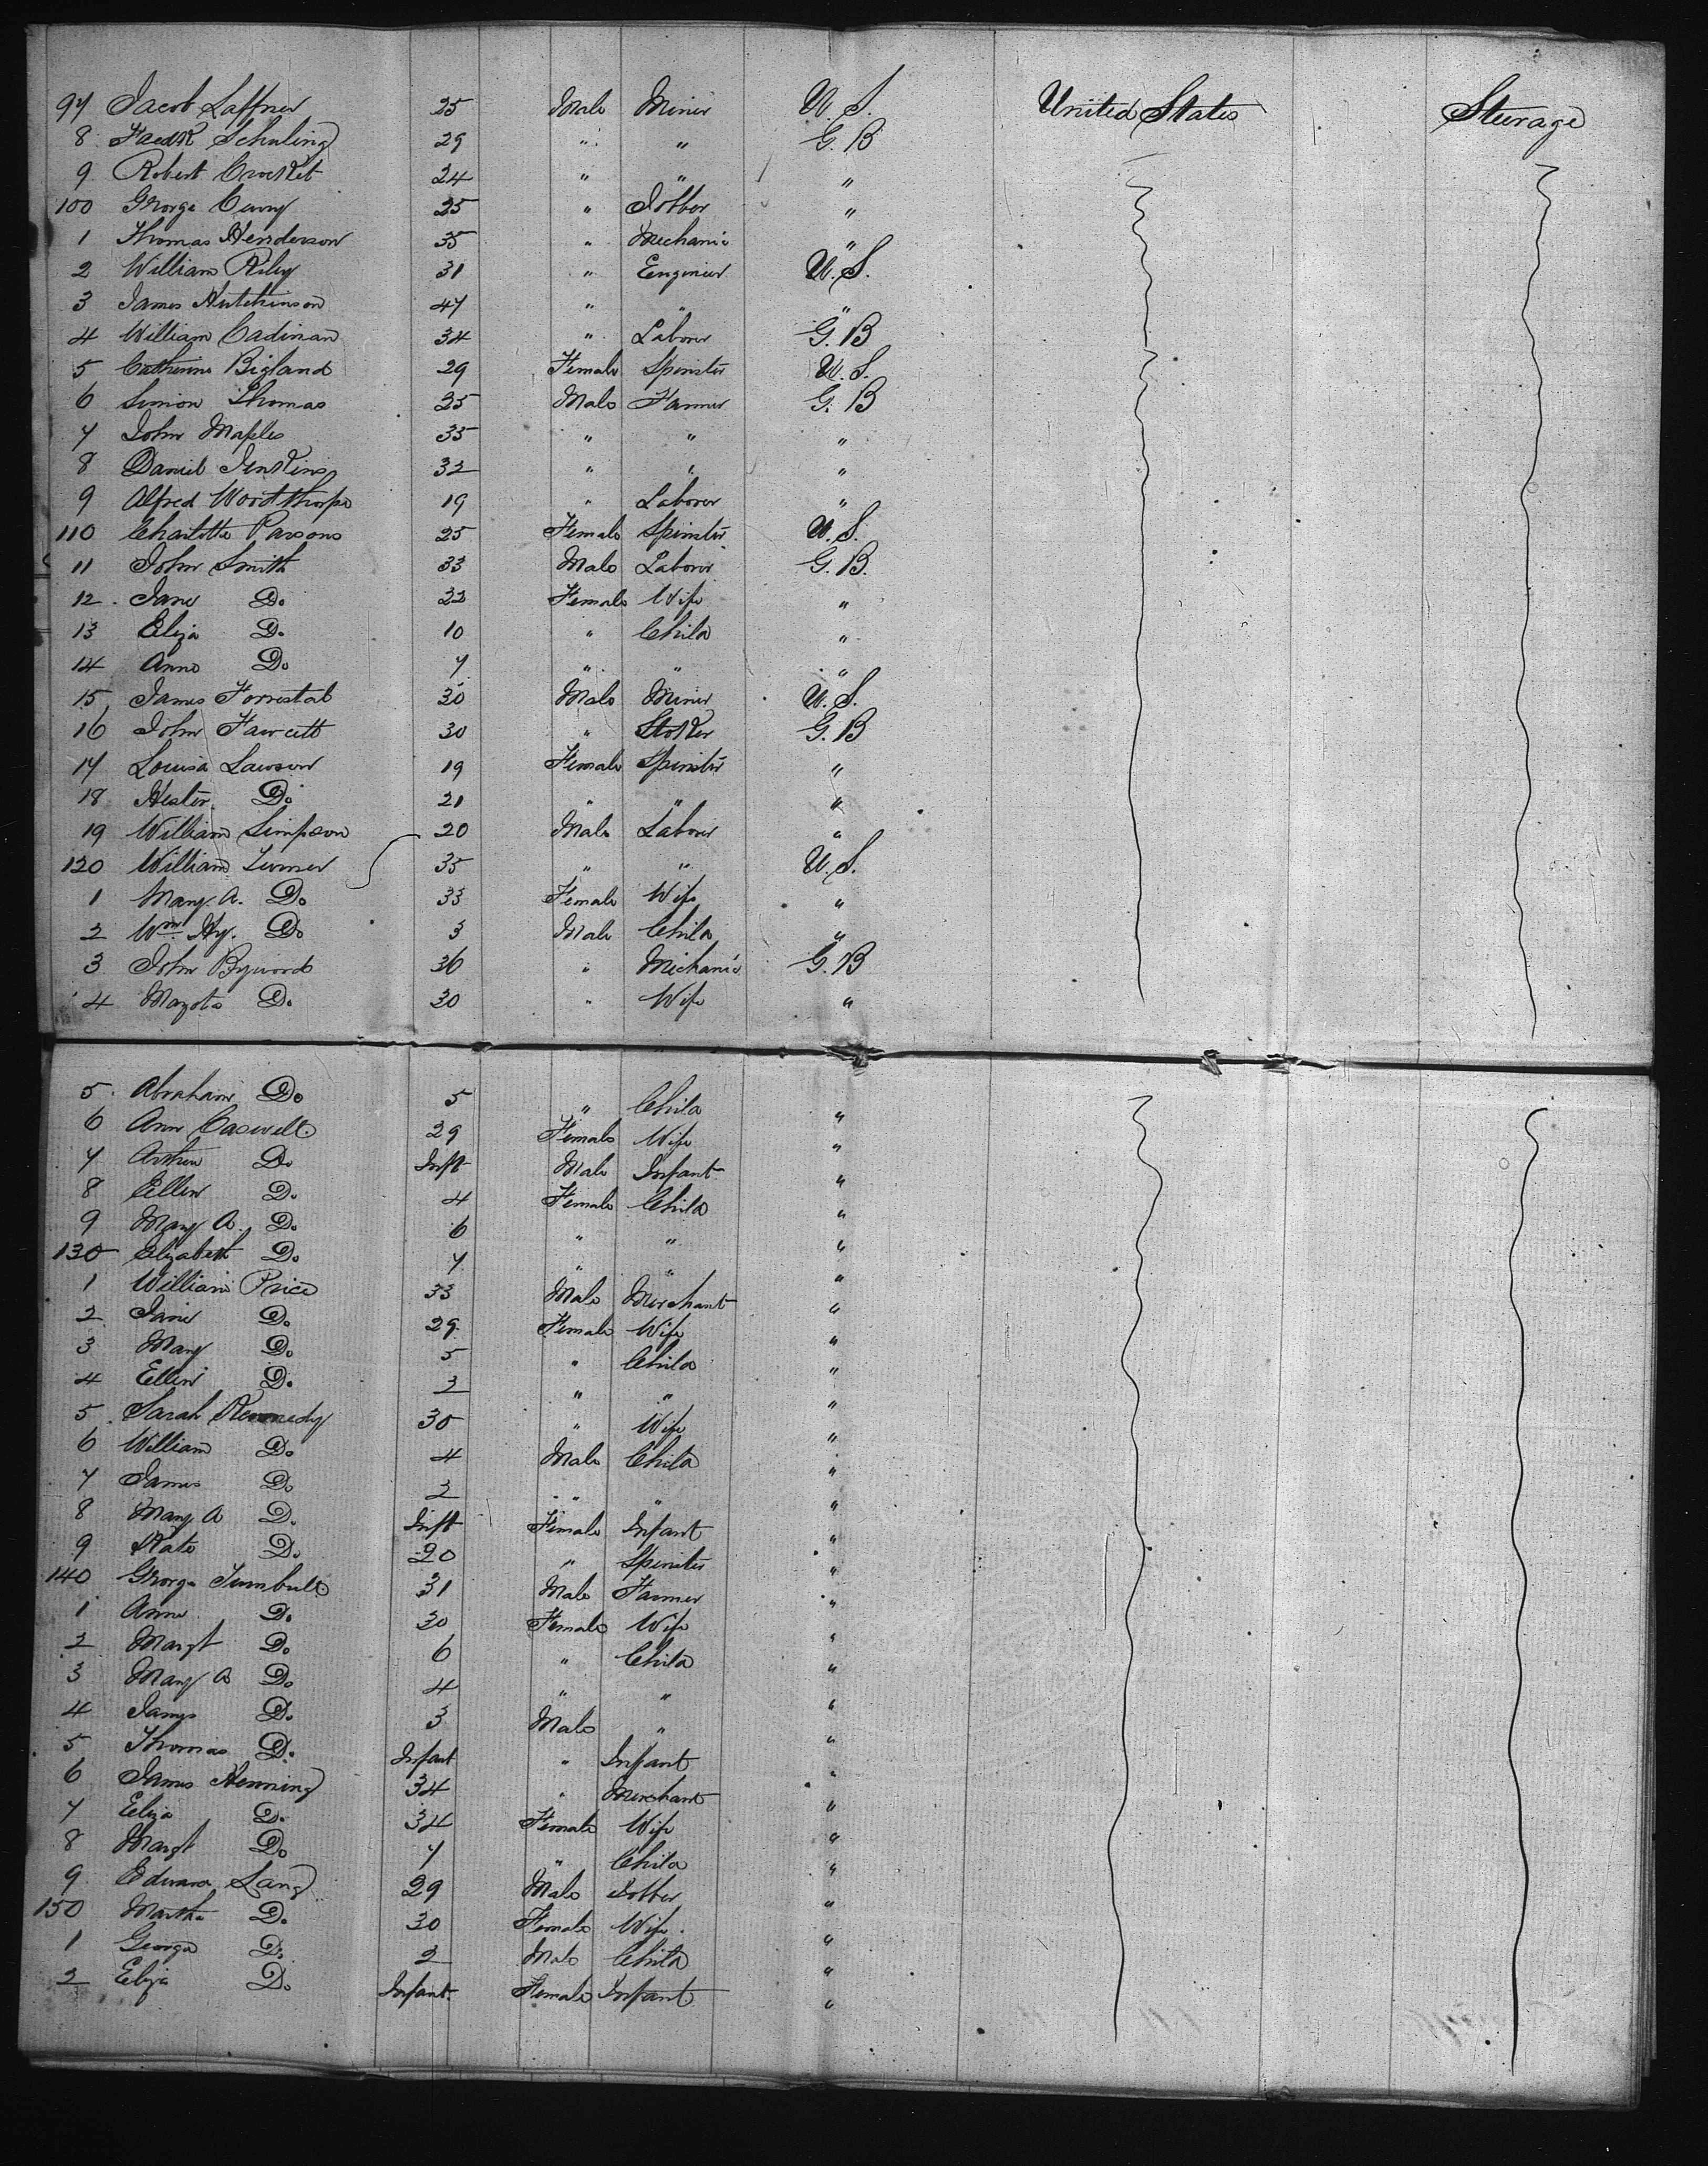 97 Jacob Laffner 25 Male Miner U.S. United States Steerage
8 Fredk Schuling 29 " " G.B
9 Robert Crocket 24 " " "
100 George Curry 25 " Jobber "
1 Thomas Henderson 35 " Mechanic "
2 William Riley 31 " Engineer U.S.
3 James Hutchinson 47 " " "
4 William Cadinan 34 " Laborer G.B
5 Catherine Bigland 29 Female Spinster U.S.
6 Simion Thomas 25 Male Farmer G.B
7 John Maples 35 " " "
8 Daniel Jenkins 32 " " "
9 Alfred Woodthorpe 19 " Laborer "
110 Charlotte Parsons 25 Female Spinster U.S.
11 John Smith 33 Male Laborer G.B.
12 Jane Do 32 Female Wife "
13 Eliza Do 10 " Child "
14 Anne Do 7 " " "
15 James Forrestal 30 Male Miner U.S.
16 John Fawcett 30 " Stoker G.B
17 Louisa Lawson 19 Female Spinster "
18 Hester Do 21 " " "
19 William Simpson 20 Male Laborer "
120 William Turner 35 " " U.S.
1 Mary A. Do 33 Female Wife "
2 Wm. Hy. Do 3 Male Child "
3 John Bywood 36 " Mechanic G.B
4 Do 30 " Wife "
5 Abraham Do 5 " Child "
6 Ann Caswell 29 Female Wife "
7 Arthur Do Inft Male Infant "
8 Ellen Do 4 Female Child "
9 Mary A. Do 6 " " "
130 Elizabeth Do 7 " " "
1 William Price 33 Male Merchant "
2 Jane Do 29 Female Wife "
3 Mary Do 5 " Child "
4 Ellen Do 2 " " "
5 Sarah Kennedy 30 " Wife "
6 William Do 4 Male Child "
7 James Do 2 " " "
8 Mary A Do Inft Female Infant "
9 Kate Do 20 " Spinster "
140 George Turnbull 31 Male Farmer "
1 Anne Do 30 Female Wife "
2 Margt Do 6 " Child "
3 Mary A Do 4 " " "
4 James Do 3 Male " "
5 Thomas Do Infant " Infant "
6 James Henning 34 " Merchant "
7 Eliza Do 34 Female Wife "
8 Margt Do 7 " Child "
9 Edward Lang 29 Male Jobber "
150 Martha Do 30 Female Wife "
1 George Do 2 Male Child "
2 Eliza Do Infant Female Infant "